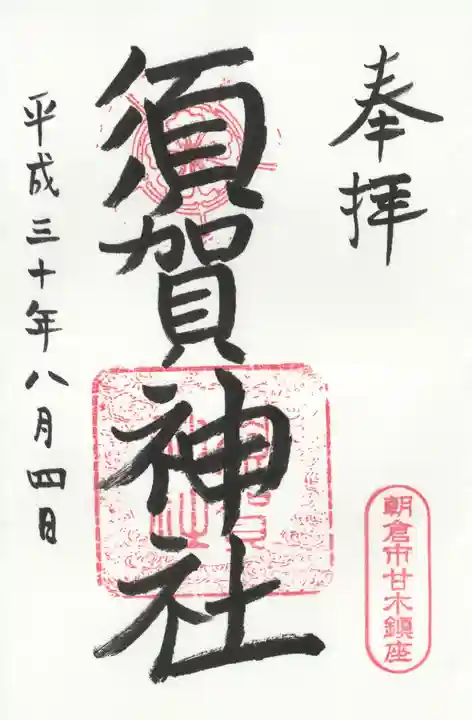 奉拝
須賀神社
平成三十年八月四日
朝倉市甘木鎮座